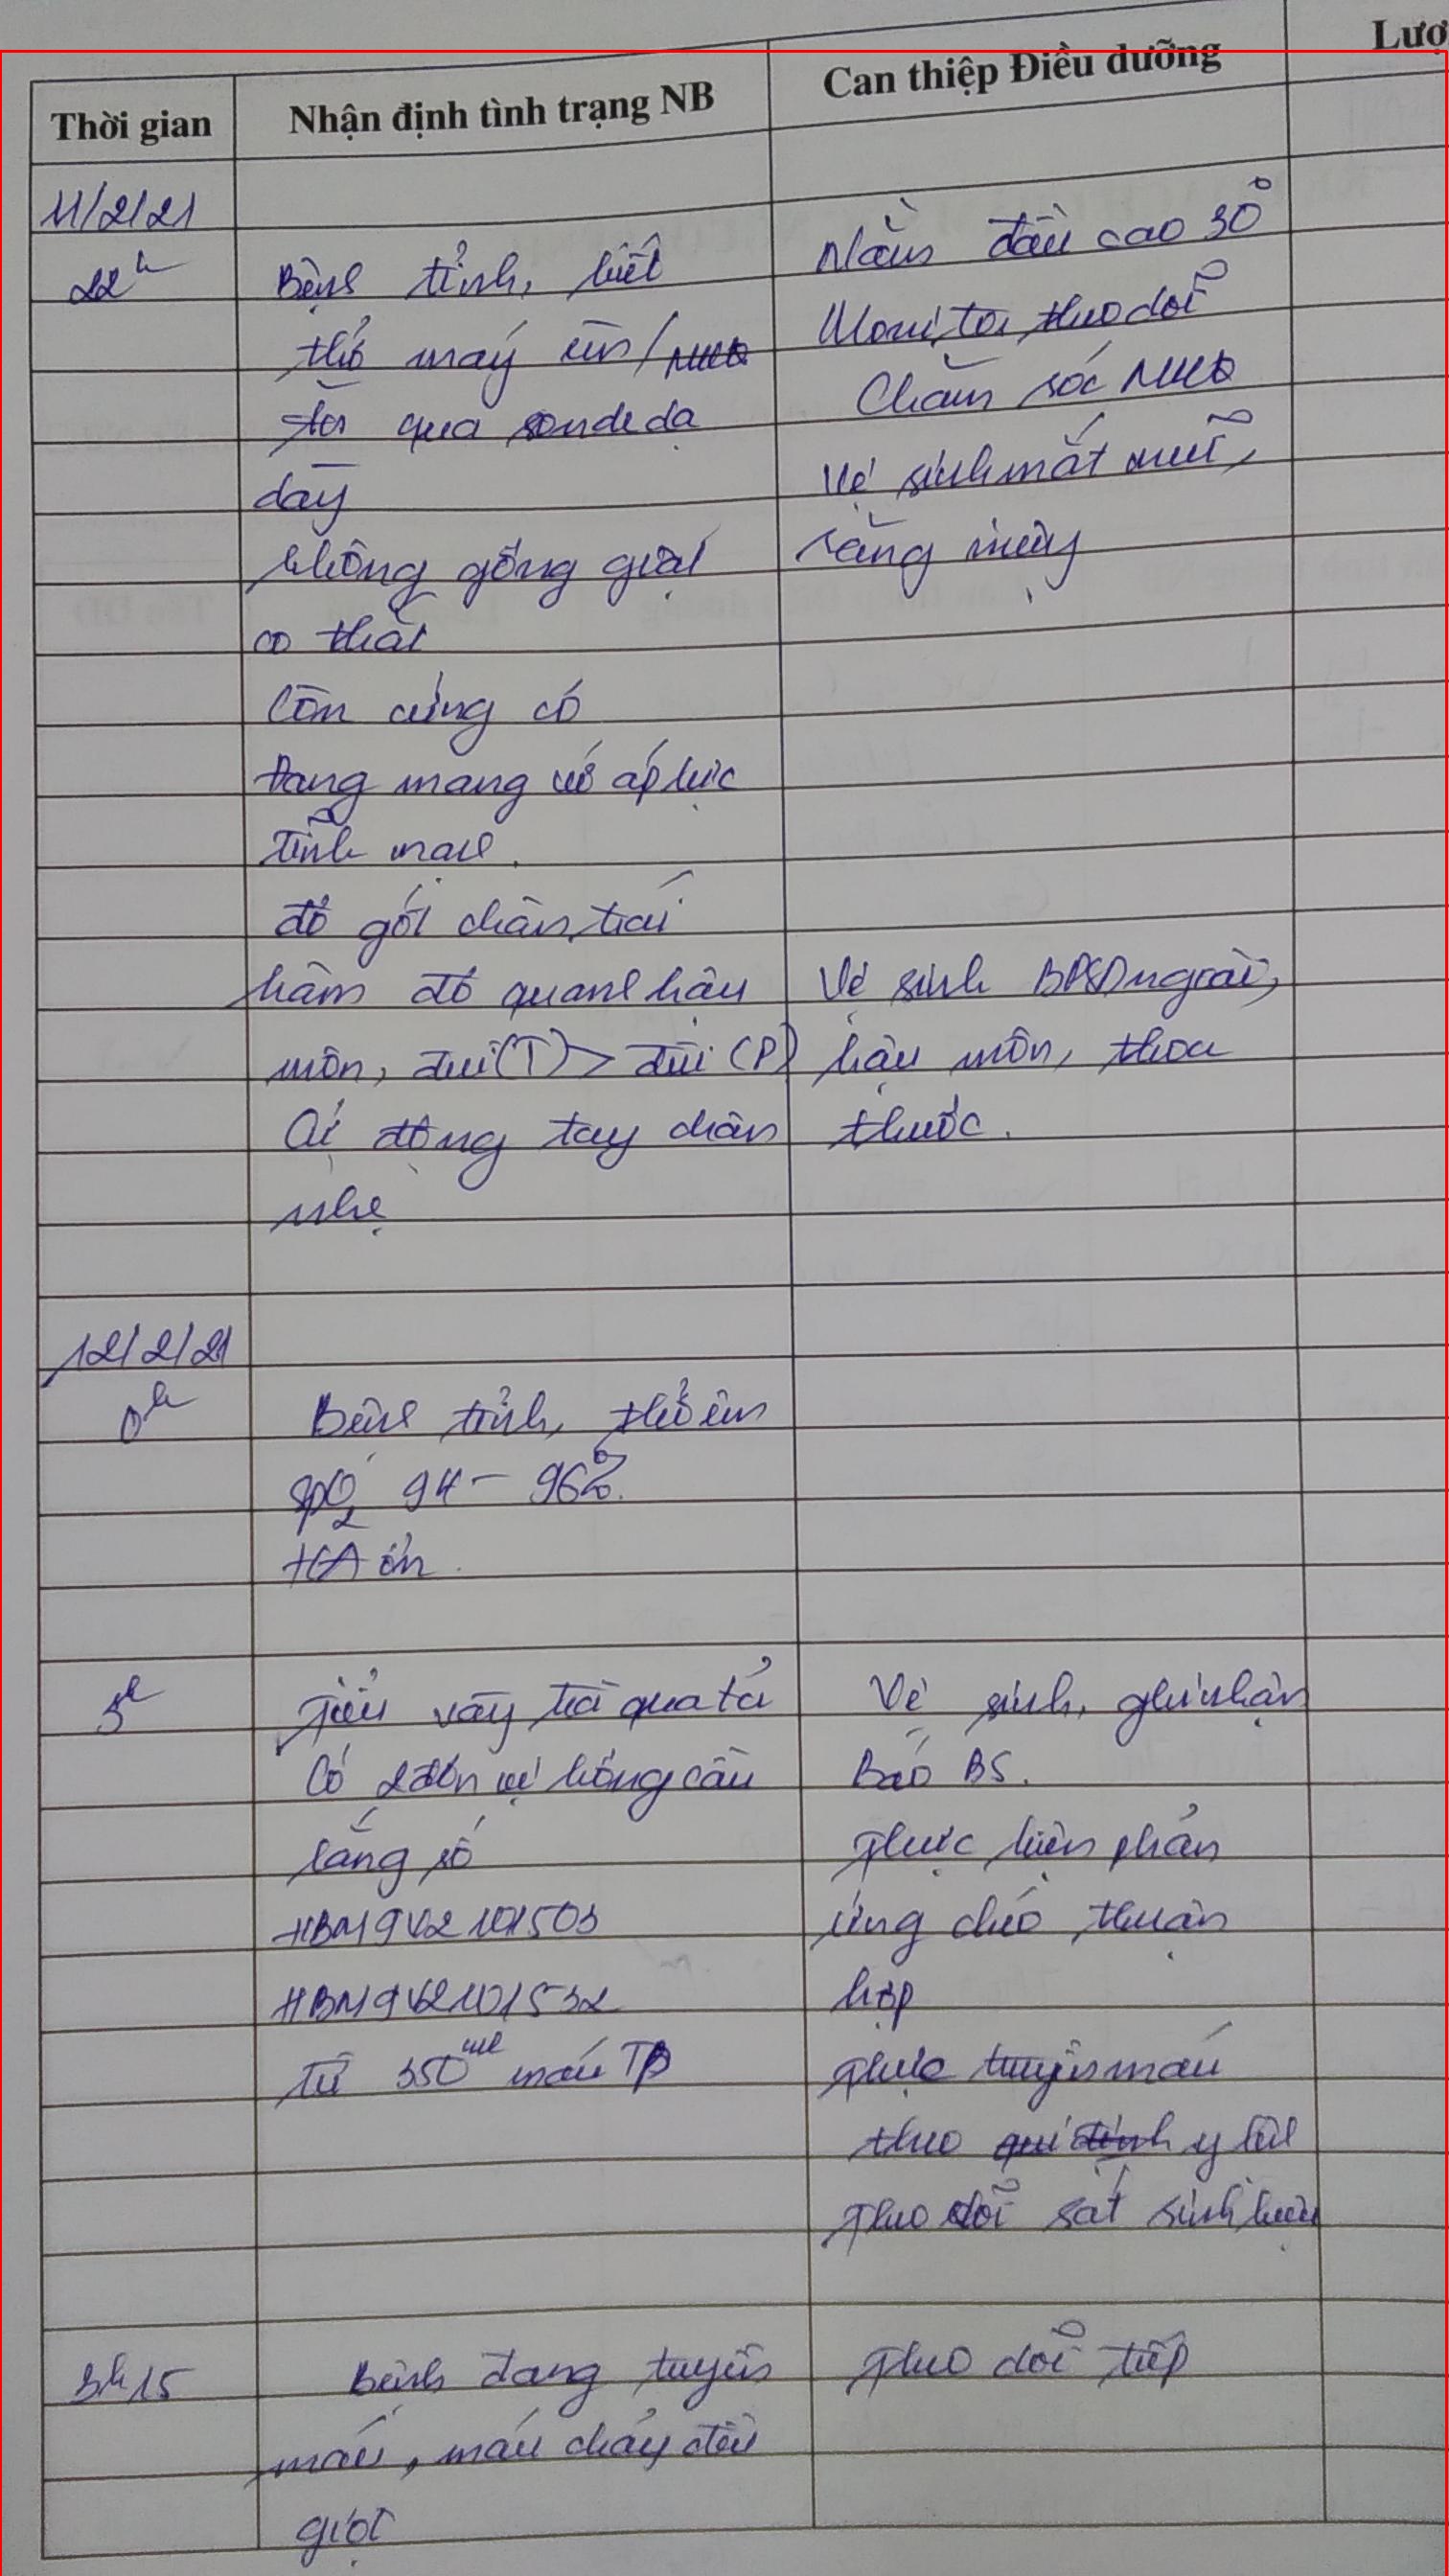 Thời gian Nhận định tình trạng NB Can thiệp Điều dưỡng Lượ
11/2/21
22h Bệnh tỉnh, biết Nằm đầu cao 30°
thở máy êm/NKQ Monitor theo dõi
ăn qua sonde dạ Chăm sóc NKQ
dày Vệ sinh mắt mũi,
Không gồng giật răng miệng
co thắt
Còn cứng cổ
Đang mang  áp lực
tĩnh mạch.
đỏ gối chân trái
hăm đỏ quanh hậu Vệ sinh BPSD ngoài,
môn, đùi (T) > đùi (P) hậu môn, thoa
Cử động tay chân thuốc.
nhẹ
12/2/21
0h Bệnh tỉnh, thở êm
SpO2 94 - 96%.
HA ổn.
3h Tiểu vàng trà qua tã Vệ sinh, ghi nhận
Có 2 đơn vị hồng cầu Báo BS.
lắng số Thực hiện phản
HBM9V2101503 ứng chéo thuận
HBM9V2101532 hợp
Từ 350ml máu TP Thực truyền máu
theo y lệnh
Theo dõi sát sinh hiệu
3h15 Bệnh đang truyền Theo dõi tiếp
máu, máu chảy đều
giọt